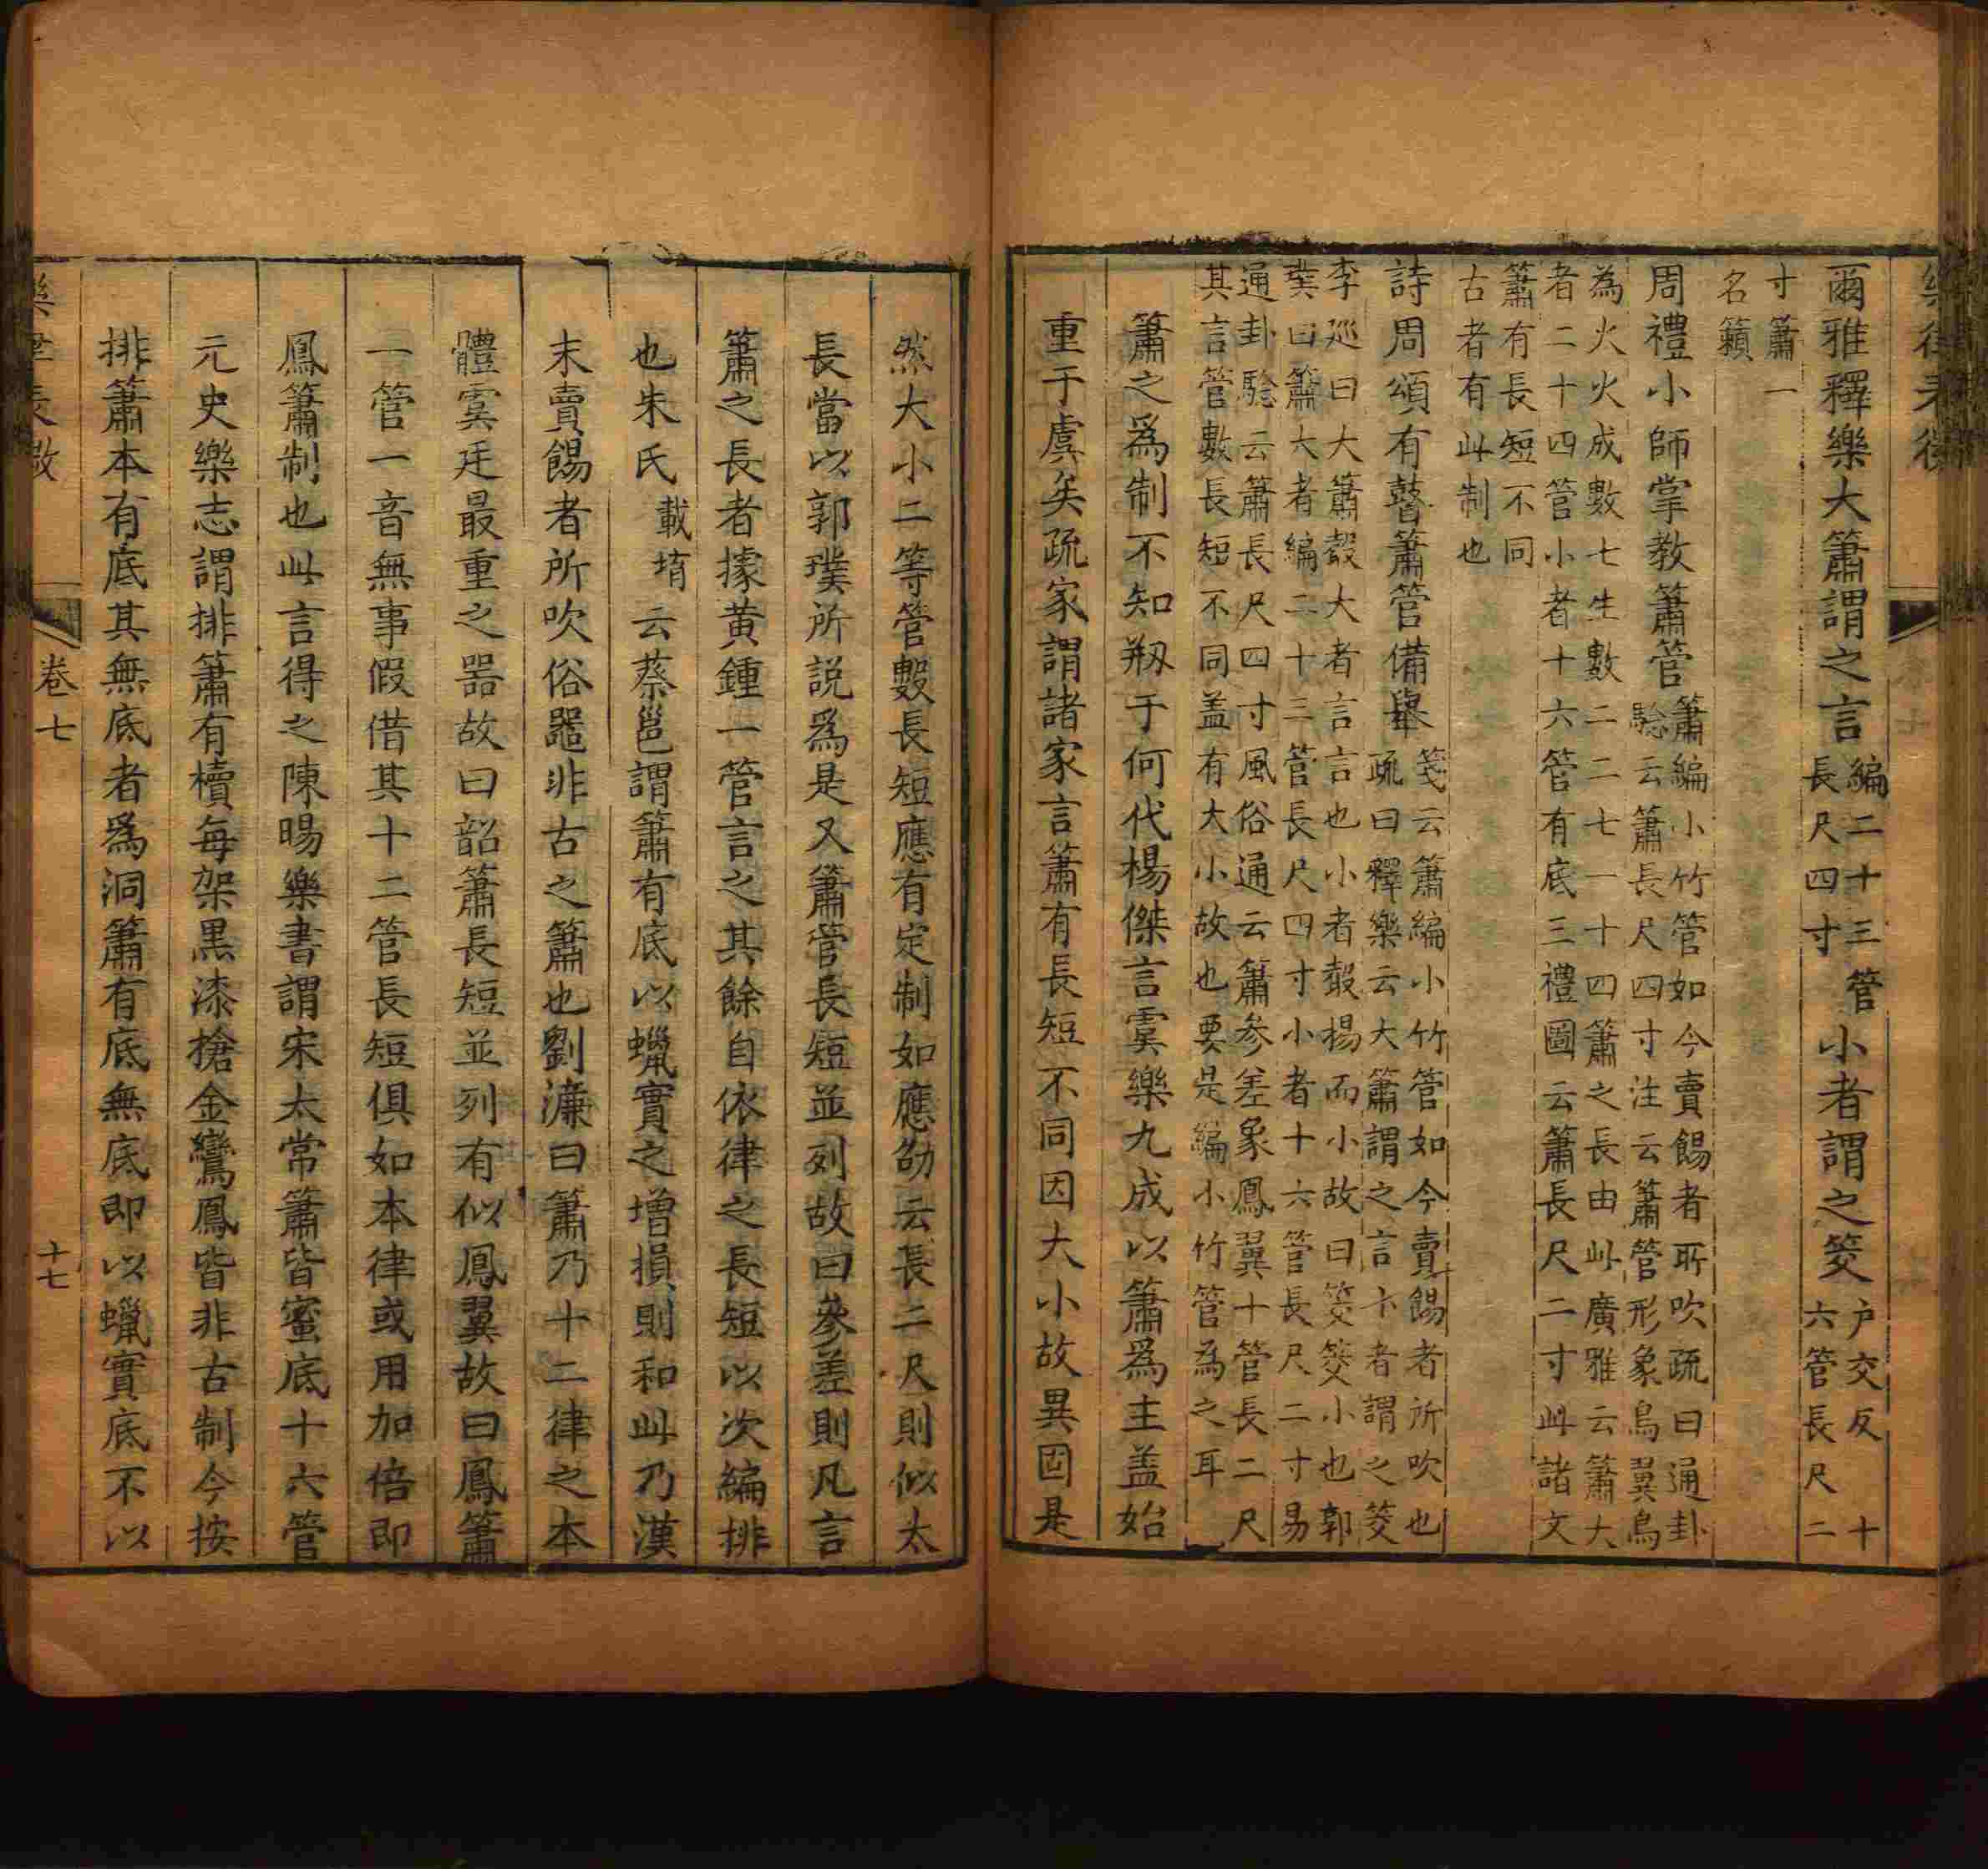 樂律表微
爾雅釋樂大簫謂之言
編二十三管
長尺四寸
小者謂之筊
户交反十
六管長尺二
寸簫一
名籟
周禮小師掌教簫管
簫編小竹管如今賣餳者所吹疏曰通卦
騐云簫長尺四寸注云簫管形象鳥翼鳥
為火火成數七生數二二七一十四簫之長由此廣雅云簫大
者二十四管小者十六管有底三禮圖云簫長尺二寸此諸文
簫有長短不同
古者有此制也
詩周頌有瞽簫管備舉
箋云簫編小竹管如今賣餳者所吹也
疏曰釋樂云大簫謂之言小者謂之筊
李廵曰大簫聲大者言言也小者聲揚而小故曰筊筊小也郭
璞曰簫大者編二十三管長尺四寸小者十六管長尺二寸易
通卦騐云簫長尺四寸風俗通云簫参差象鳳翼十管長二尺
其言管數長短不同盖有大小故也要是編小竹管為之耳
簫之爲制不知剏于何代楊傑言虞樂九成以簫爲主盖始
重于虞矣疏家謂諸家言簫有長短不同因大小故異固是
然大小二等管數長短應有定制如應劭云長二尺則似太
長當以郭璞所説爲是又簫管長短並列故曰參差則凡言
簫之長者據黄鍾一管言之其餘自依律之長短以次編排
也朱氏
載堉
云蔡邕謂簫有底以蠟實之增損則和此乃漢
末賣餳者所吹俗噐非古之簫也劉濂曰簫乃十二律之本
體虞廷最重之噐故曰韶簫長短並列有似鳳翼故曰鳳簫
一管一音無事假借其十二管長短俱如本律或用加倍即
鳳簫制也此言得之陳暘樂書謂宋太常簫皆蜜底十六管
元史樂志謂排簫有櫝每架黒漆槍金鸞鳳皆非古制今按
排簫本有底其無底者爲洞簫有底無底即以蠟實底不以
樂律表微
卷七
十七